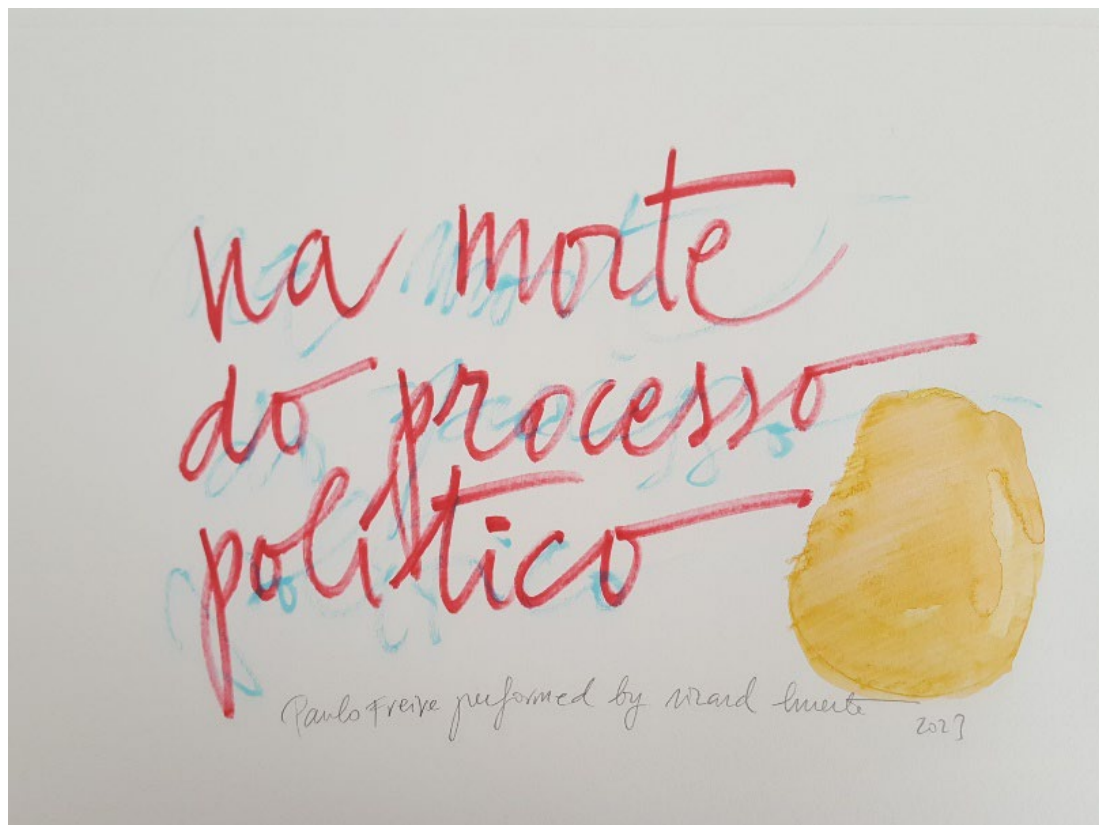 na morte
do processo
político
Paulo Freire performed by
2023